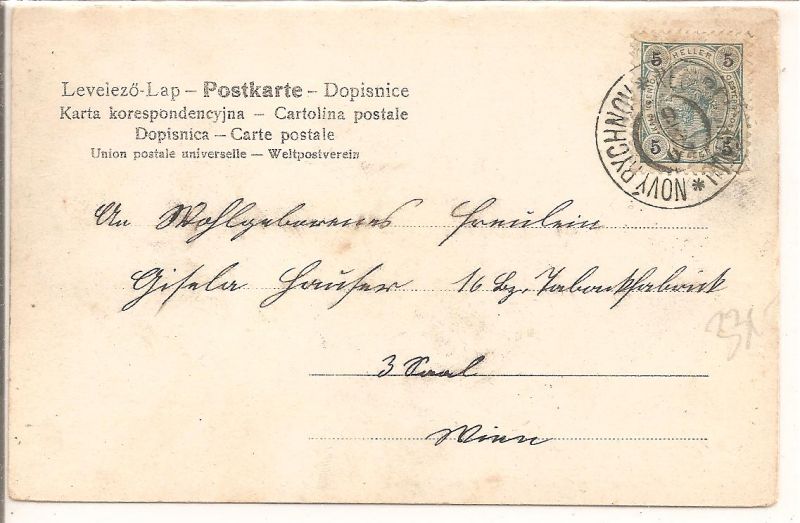 Levelező-Lap – Postkarte – Dopisnice
Karta korespondencyjna – Cartolina postale
Dopisnica – Carte postale
Union postale universelle – Weltpostverein
5 HELLER 5
5 5
NOVÝ RYCHNOV
An Wohlgeborenes Freulein
Gisela Hauser 16 Bz. Tabackfabrick
3 Saal
Wien